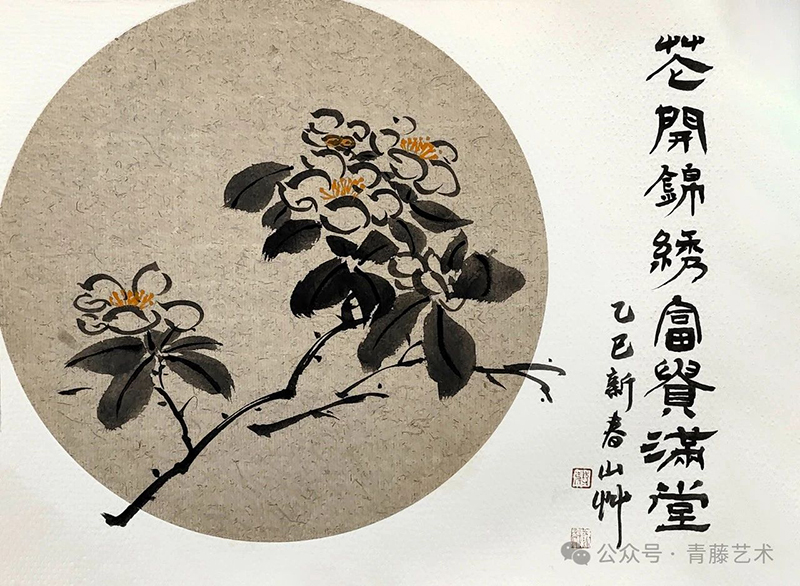 花開錦綉富貴滿堂
乙巳新春山艸
公众号·青藤艺术